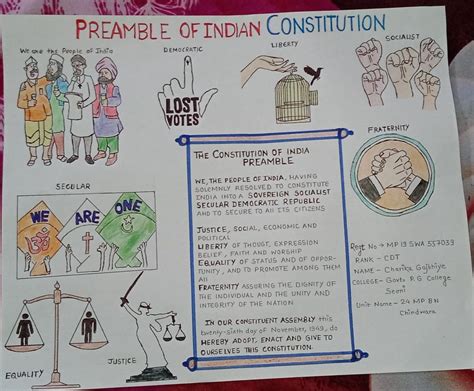 PREAMBLE OF INDIAN CONSTITUTION
We are the People of India
DEMOCRATIC
LIBERTY
SOCIALIST
LOST
VOTES
FRATERNITY
THE CONSTITUTION OF INDIA
PREAMBLE
WE, THE PEOPLE OF INDIA, HAVING
SOLEMNLY RESOLVED TO CONSTITUTE
INDIA INTO A SOVEREIGN SOCIALIST
SECULAR DEMOCRATIC REPUBLIC
AND TO SECURE TO All ITS CITIZENS
JUSTICE, SOCIAL, ECONOMIC AND
POLITICAL
LIBERTY OF THOUGHT, EXPRESSION
BELIEF, FAITH AND WORSHIP
EQUALITY OF STATUS AND OF OPPOR-
TUNITY, AND TO PROMOTE AMONG THEM
All
FRATERNITY ASSURING THE DIGNITY
OF THE INDIVIDUAL AND THE UNITY AND
INTEGRITY OF THE NATION
IN OUR CONSTITUENT ASSEMBLY this
twenty-sixth day of November, 1949, do
HEREBY ADOPT, ENACT AND GIVE TO
OURSELVES THIS CONSTITUTION.
SECULAR
WE ARE ONE
ॐ
EQUALITY
JUSTICE
Regt No → MP 19 SWA 557039
RANK - CDT
NAME - Charika Gajbhiye
COLLEGE - Govt. P.G College
Seoni
Unit Name - 24 MP BN
Chindwara